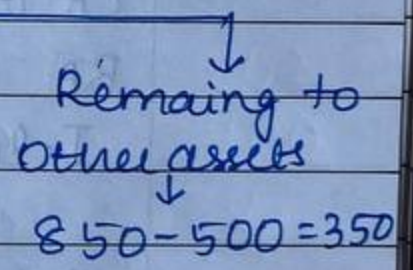 Remaing to
other assets
850-500=350